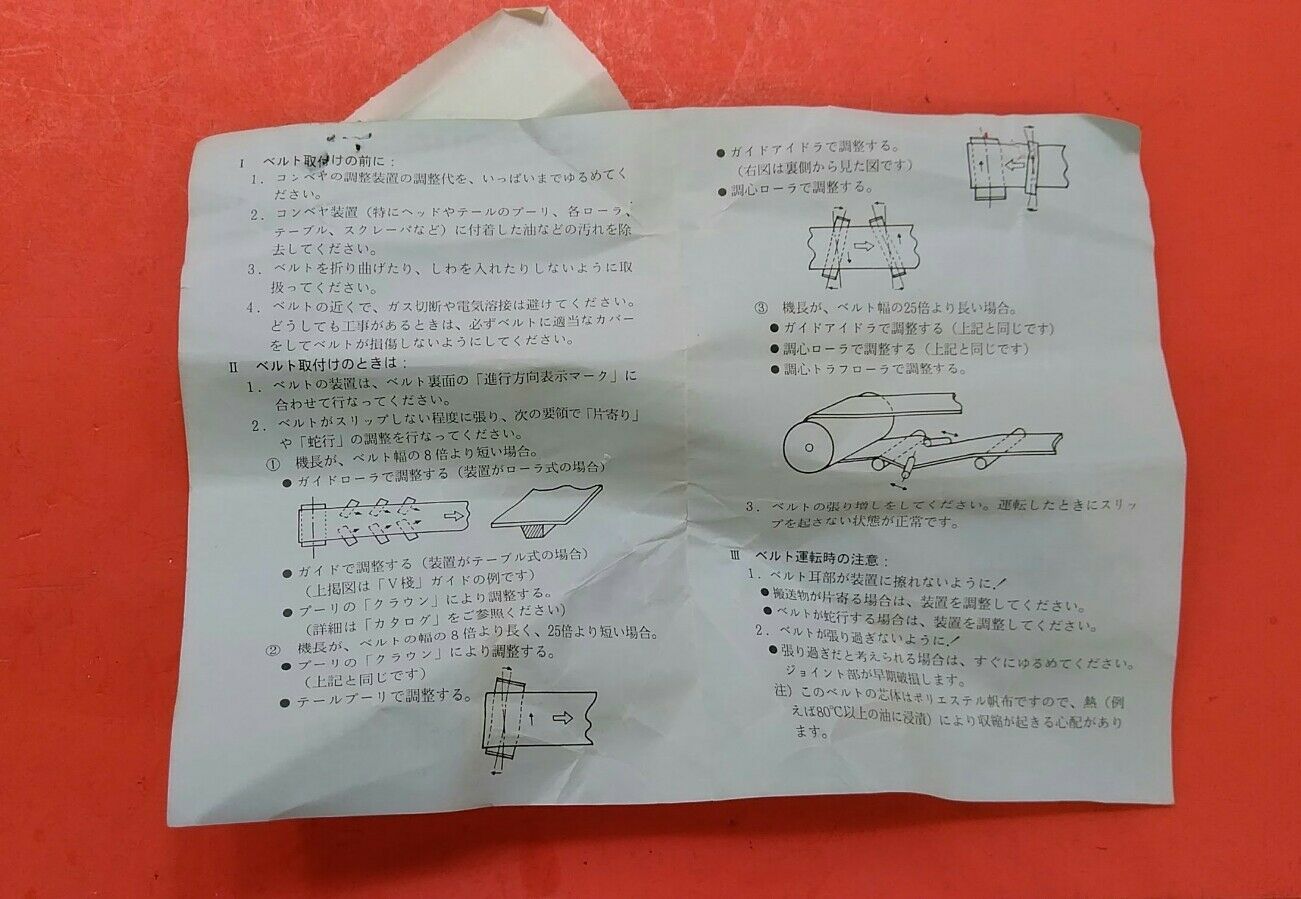 I ベルト取付けの前に：
1．コンベヤの調整装置の調整代を、いっぱいまでゆるめてく
ださい。
2．コンベヤ装置（特にヘッドやテールのプーリ、各ローラ、
テーブル、スクレーパなど）に付着した油などの汚れを除
去してください。
3．ベルトを折り曲げたり、しわを入れたりしないように取
扱ってください。
4．ベルトの近くで、ガス切断や電気溶接は避けてください。
どうしても工事があるときは、必ずベルトに適当なカバー
をしてベルトが損傷しないようにしてください。
II ベルト取付けのときは：
1．ベルトの装置は、ベルト裏面の「進行方向表示マーク」に
合わせて行なってください。
2．ベルトがスリップしない程度に張り、次の要領で「片寄り」
や「蛇行」の調整を行なってください。
① 機長が、ベルト幅の8倍より短い場合。
●ガイドローラで調整する（装置がローラ式の場合）
●ガイドで調整する（装置がテーブル式の場合）
（上掲図は「V桟」ガイドの例です）
●プーリの「クラウン」により調整する。
（詳細は「カタログ」をご参照ください）
② 機長が、ベルトの幅の8倍より長く、25倍より短い場合。
●プーリの「クラウン」により調整する。
（上記と同じです）
●テールプーリで調整する。
●ガイドアイドラで調整する。
（右図は裏側から見た図です）
●調心ローラで調整する。
③ 機長が、ベルト幅の25倍より長い場合。
●ガイドアイドラで調整する（上記と同じです）
●調心ローラで調整する（上記と同じです）
●調心トラフローラで調整する。
3．ベルトの張り増しをしてください。運転したときにスリッ
プを起さない状態が正常です。
III ベルト運転時の注意：
1．ベルト耳部が装置に擦れないように！
●搬送物が片寄る場合は、装置を調整してください。
●ベルトが蛇行する場合は、装置を調整してください。
2．ベルトが張り過ぎないように！
●張り過ぎだと考えられる場合は、すぐにゆるめてください。
ジョイント部が早期破損します。
注）このベルトの芯体はポリエステル帆布ですので、熱（例
えば80℃以上の油に浸漬）により収縮が起きる心配があり
ます。